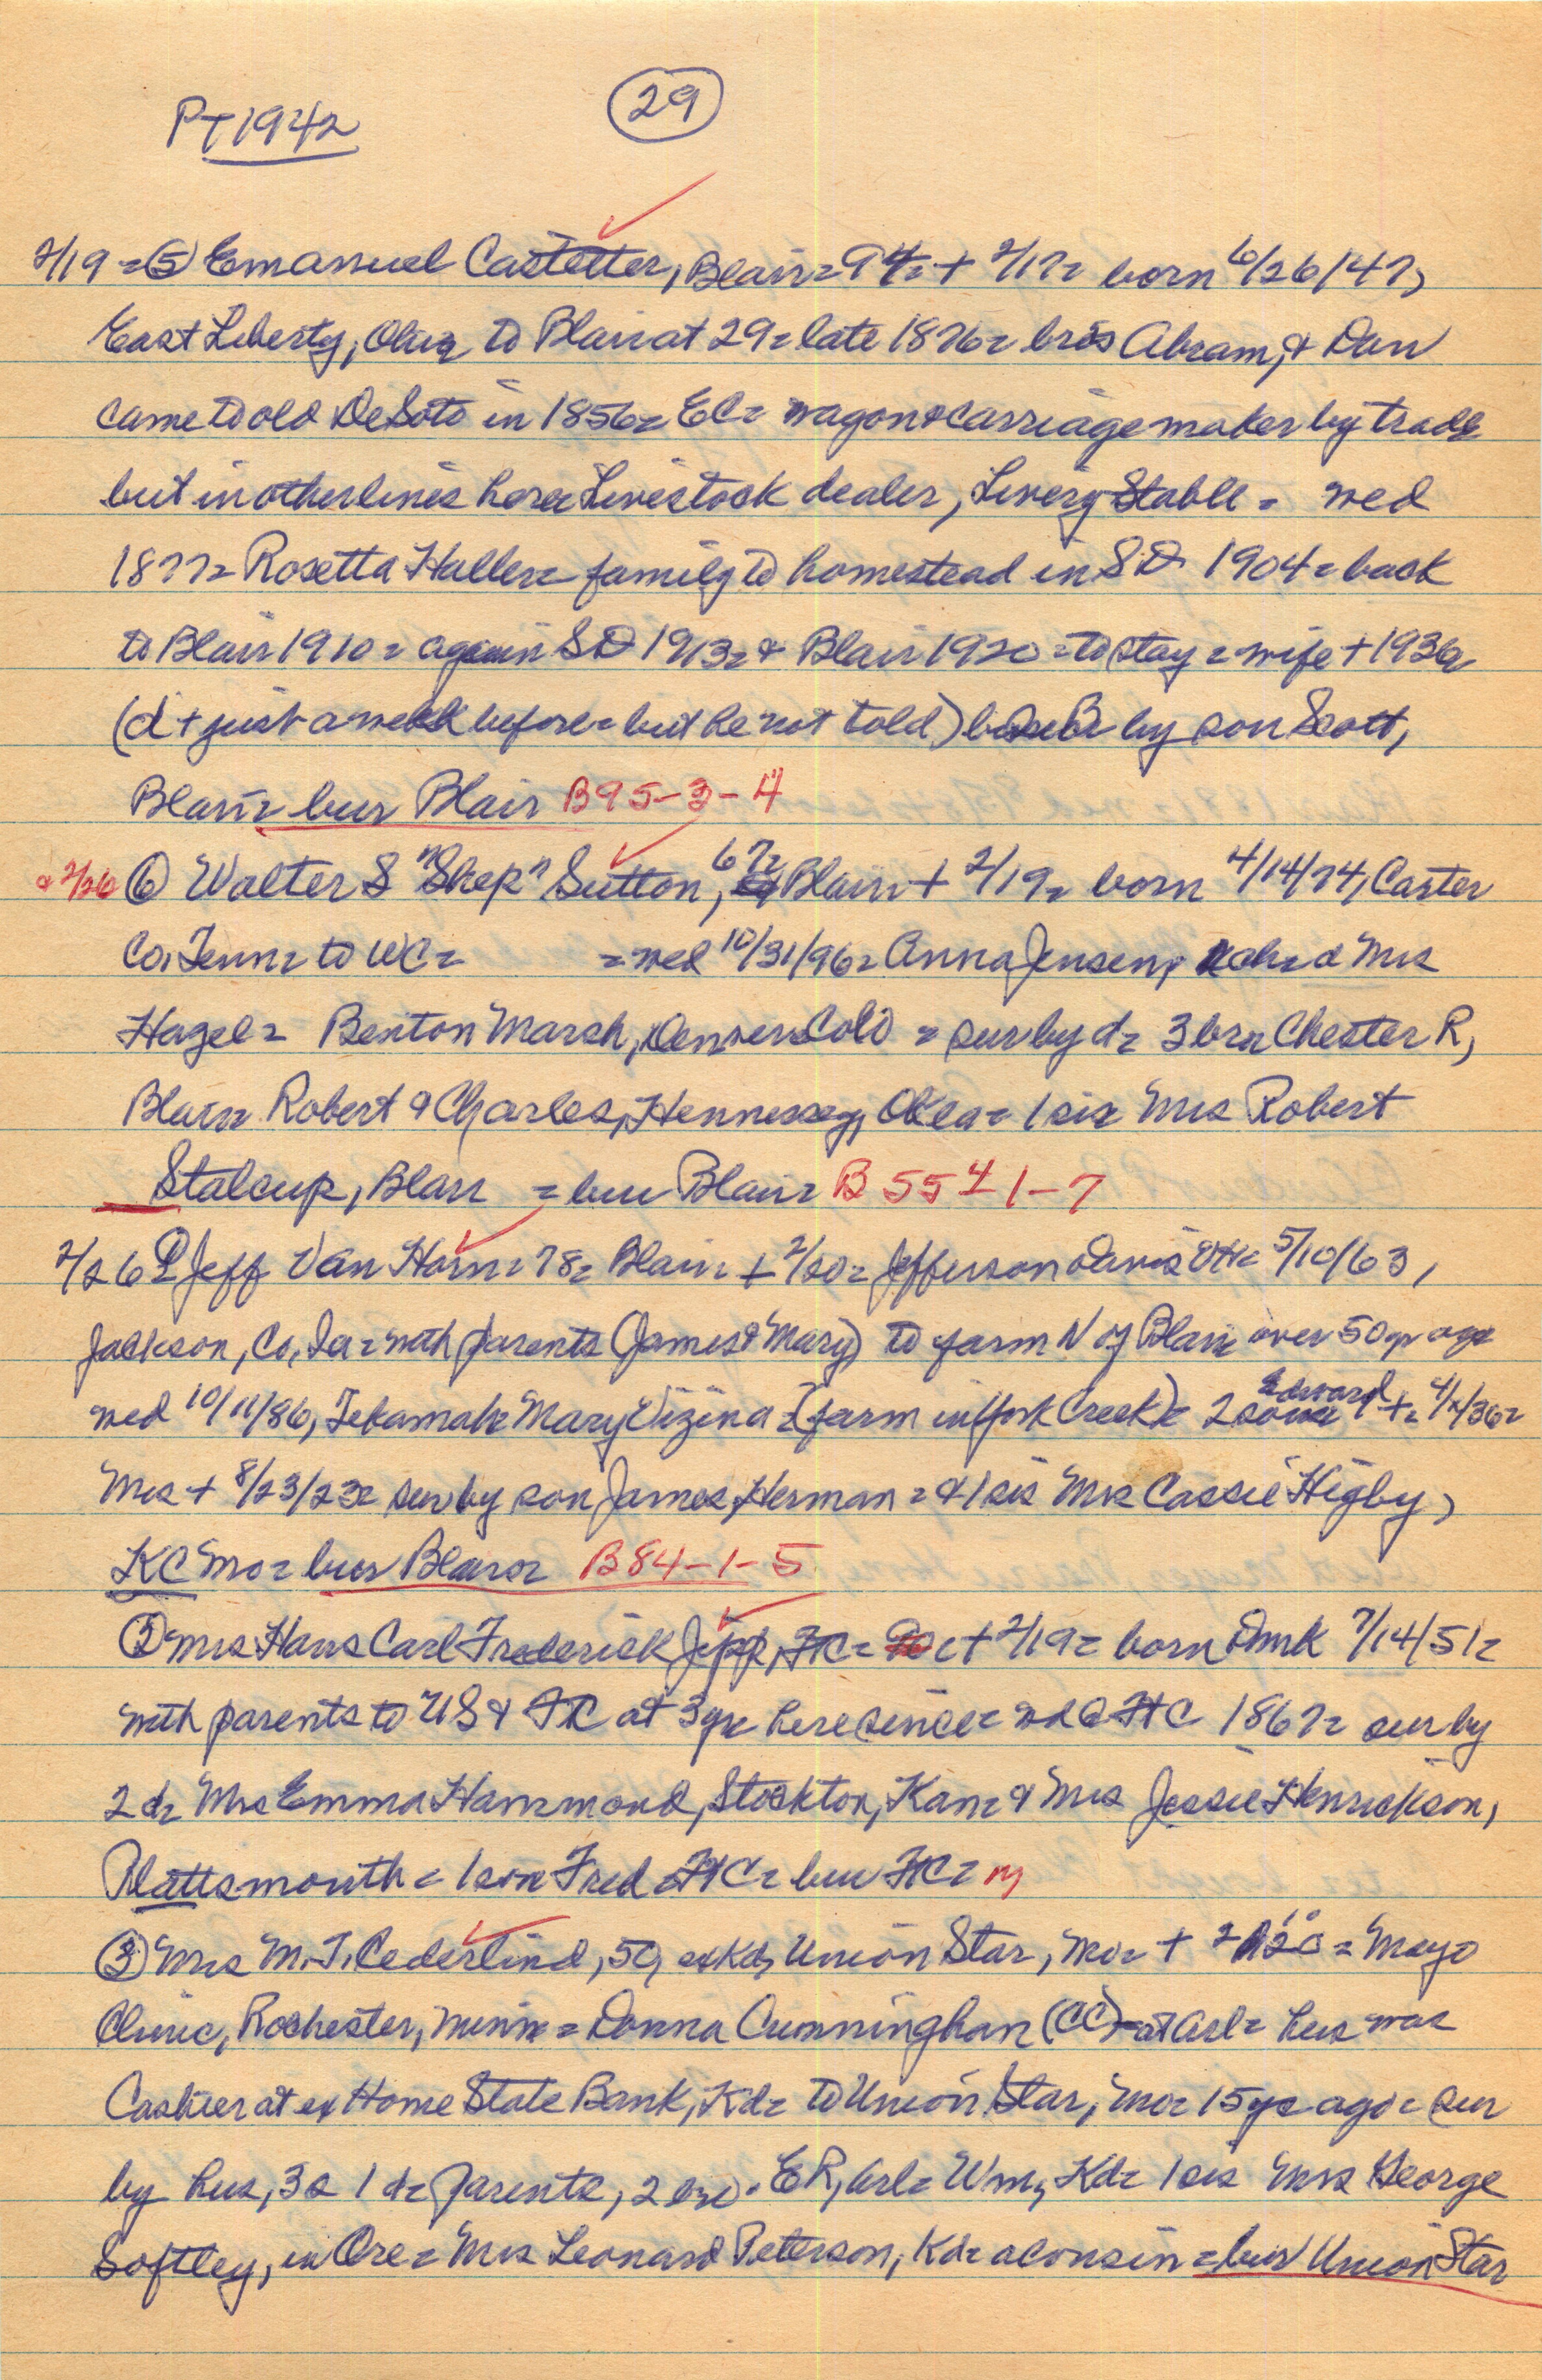 PT 1942
29
2/19 = ⑤ Emanuel Castetter, Blair = 94 = + 2/17 = born 6/26/47,
East Liberty, Ohio = to Blair at 29 = late 1876 = bros Abram, & Dan
came to old DeSoto in 1856 = EC = wagon & carriage maker by trade
but in other lines here = Livestock dealer, Livery Stable = wed
1877 = Rosetta Haller = family to homestead in SD 1904 = back
to Blair 1910 = again SD 1913 = & Blair 1920 = to stay = wife + 1936
(d + just a week before = but he not told) by son Scott,
Blair = bur Blair B95-3-4
& 2/26 ⑥ Walter S "Skep" Sutton, 67 = Blair + 2/19 = born 4/14/74, Carter
Co, Tenn = to WC = = wed 10/31/96 = Anna Jensen, = d Mrs
Hazel = Benton Marsh, Denver Colo = sur by d = 3 bro = Chester R,
Blair = Robert & Charles, Hennessey, Okla = 1 sis = Mrs Robert
Stalcup, Blair = bur Blair = B 55 4 1-7
2/26 ① Jeff Van Horn = 78 = Blair = + 2/20 = Jefferson Davis VH = 5/10/63,
Jackson, Co, Ia = with parents (James & Mary) to farm N of Blair over 50 yr ago
wed 10/11/86, Tekamah = Mary Vizina = (farm in York Creek) = 2 sons = Edward + = 4/x/36 =
Mrs + 8/23/23 = sur by son James, Herman = & 1 sis Mrs Cassie Higby,
KC Mo = bur Blair = B84-1-5
② Mrs Hans Carl Frederick Jipp, FtC = 90 + 2/19 = born Dmk 7/14/51 =
with parents to US & FtC at 3 yr = here since = wed @ FtC 1867 = sur by
2 d = Mrs Emma Hammond, Stockton, Kan = & Mrs Jessie Henrickson,
Plattsmouth = 1 son Fred = FtC = bur FtC =
③ Mrs M. J. Cederlind, 50, exKd, Union Star, Mo = + 2/20 = Mayo
Clinic, Rochester, Minn = Donna Cunningham (CC) = at Arl = hus was
Cashier at ex Home State Bank, Kd = to Union Star, Mo = 15 yr ago = sur
by hus, 3 s 1 d = parents, 2 bro = E R, Arl = Wm, Kd = 1 sis Mrs George
Softley, in Ore = Mrs Leonard Peterson, Kd = a cousin = bur Union Star